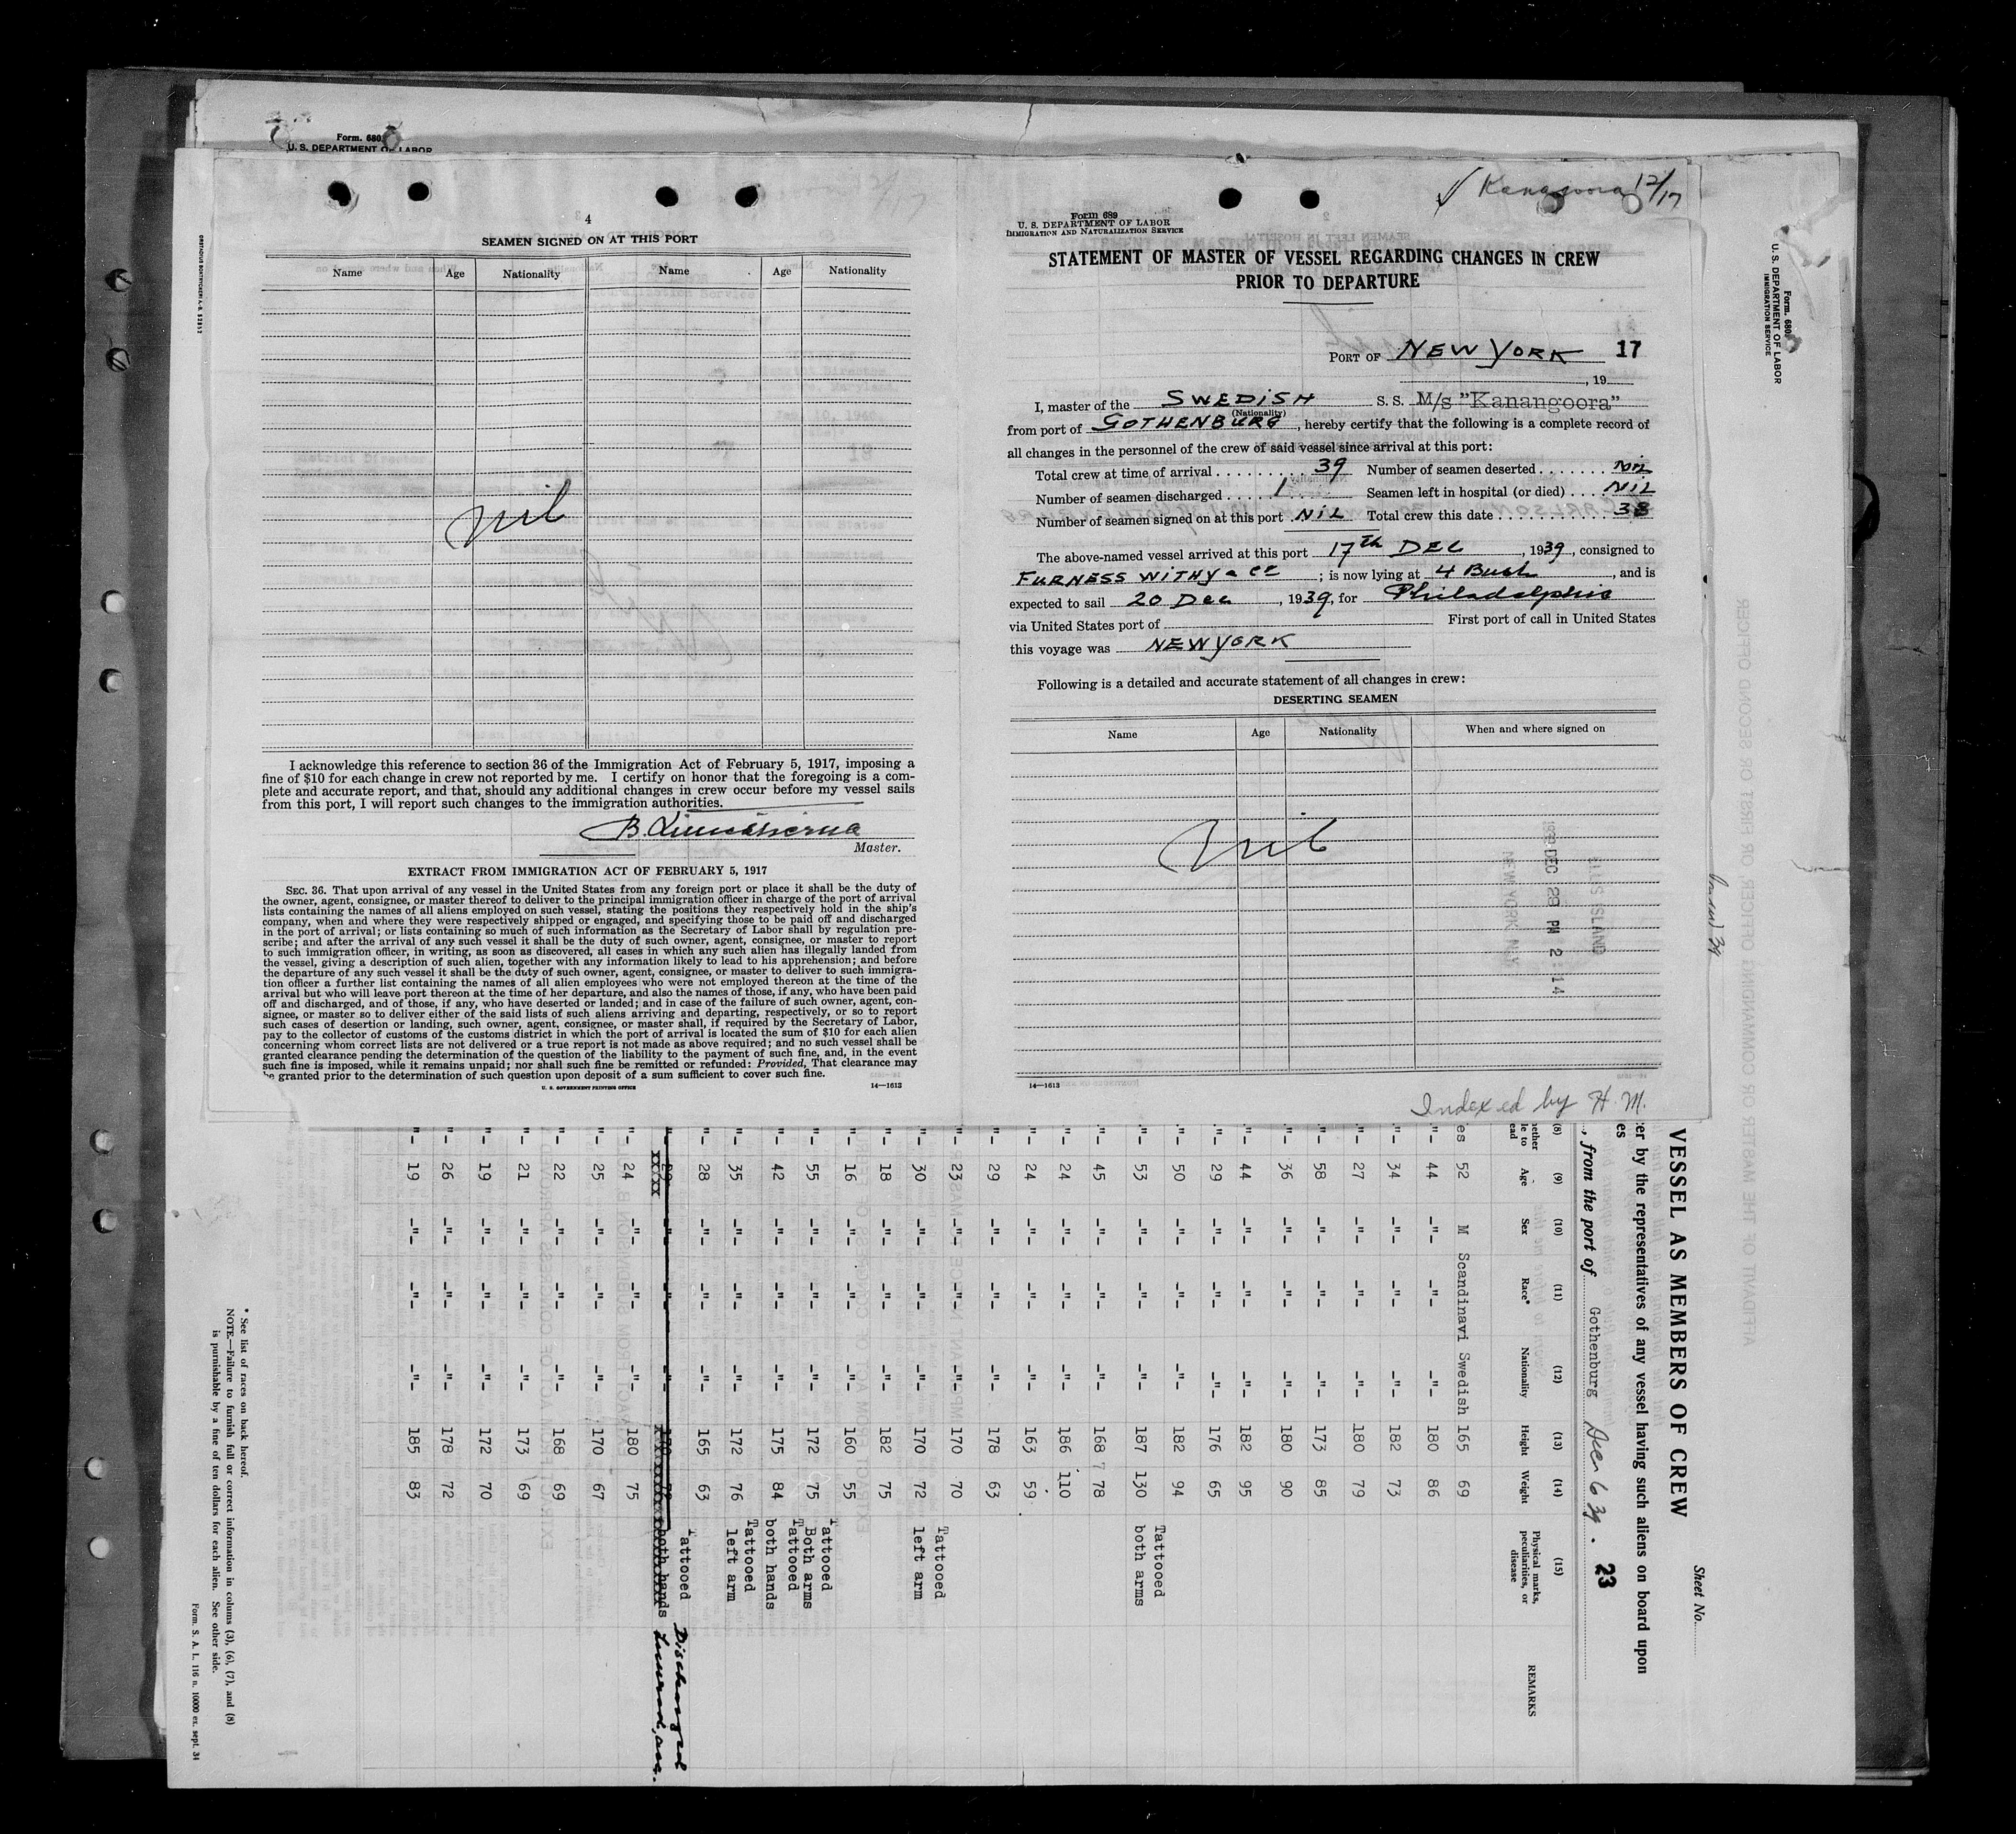 Form. 680
U. S. DEPARTMENT OF LABOR
4
SEAMEN SIGNED ON AT THIS PORT
Name Age Nationality Name Age Nationality
nil
I acknowledge this reference to section 36 of the Immigration Act of February 5, 1917, imposing a
fine of $10 for each change in crew not reported by me. I certify on honor that the foregoing is a com-
plete and accurate report, and that, should any additional changes in crew occur before my vessel sails
from this port, I will report such changes to the immigration authorities.
B.
Master.
EXTRACT FROM IMMIGRATION ACT OF FEBRUARY 5, 1917
SEC. 36. That upon arrival of any vessel in the United States from any foreign port or place it shall be the duty of
the owner, agent, consignee, or master thereof to deliver to the principal immigration officer in charge of the port of arrival
lists containing the names of all aliens employed on such vessel, stating the positions they respectively hold in the ship's
company, when and where they were respectively shipped or engaged, and specifying those to be paid off and discharged
in the port of arrival; or lists containing so much of such information as the Secretary of Labor shall by regulation pre-
scribe; and after the arrival of any such vessel it shall be the duty of such owner, agent, consignee, or master to report
to such immigration officer, in writing, as soon as discovered, all cases in which any such alien has illegally landed from
the vessel, giving a description of such alien, together with any information likely to lead to his apprehension; and before
the departure of any such vessel it shall be the duty of such owner, agent, consignee, or master to deliver to such immigra-
tion officer a further list containing the names of all alien employees who were not employed thereon at the time of the
arrival but who will leave port thereon at the time of her departure, and also the names of those, if any, who have been paid
off and discharged, and of those, if any, who have deserted or landed; and in case of the failure of such owner, agent, con-
signee, or master so to deliver either of the said lists of such aliens arriving and departing, respectively, or so to report
such cases of desertion or landing, such owner, agent, consignee, or master shall, if required by the Secretary of Labor,
pay to the collector of customs of the customs district in which the port of arrival is located the sum of $10 for each alien
concerning whom correct lists are not delivered or a true report is not made as above required; and no such vessel shall be
granted clearance pending the determination of the question of the liability to the payment of such fine, and, in the event
such fine is imposed, while it remains unpaid; nor shall such fine be remitted or refunded: Provided, That clearance may
be granted prior to the determination of such question upon deposit of a sum sufficient to cover such fine.
U. S. GOVERNMENT PRINTING OFFICE 14—1613
Kanangoora 12/17
Form 689
U. S. DEPARTMENT OF LABOR
IMMIGRATION AND NATURALIZATION SERVICE
STATEMENT OF MASTER OF VESSEL REGARDING CHANGES IN CREW
PRIOR TO DEPARTURE
PORT OF NEW YORK 17
, 19
I, master of the SWEDISH S. S. M/s "Kanangoora"
(Nationality)
from port of GOTHENBURG, hereby certify that the following is a complete record of
all changes in the personnel of the crew of said vessel since arrival at this port:
Total crew at time of arrival 39 Number of seamen deserted Nil
Number of seamen discharged 1 Seamen left in hospital (or died) Nil
Number of seamen signed on at this port NiL Total crew this date 38
The above-named vessel arrived at this port 17th DEC, 1939, consigned to
FURNESS WITHY & Co; is now lying at 4 Bush, and is
expected to sail 20 Dec, 1939, for Philadelphia
via United States port of First port of call in United States
this voyage was NEW YORK
Following is a detailed and accurate statement of all changes in crew:
DESERTING SEAMEN
Name Age Nationality When and where signed on
nil
ELLIS ISLAND
1939 DEC 28 PM 2 14
NEW YORK N.Y.
14—1613
Indexed by H. M.
Form. 680
U. S. DEPARTMENT OF LABOR
IMMIGRATION SERVICE
Sheet No.
VESSEL AS MEMBERS OF CREW
er by the representatives of any vessel having such aliens on board upon
es
, from the port of Gothenburg Dec 6 39. 23
(8) (9) (10) (11) (12) (13) (14) (15)
Age Sex Race* Nationality Height Weight Physical marks, peculiarities, or disease REMARKS
es 52 M Scandinavi Swedish 165 69
-"- 44 -"- -"- -"- 180 86
-"- 34 -"- -"- -"- 182 73
-"- 27 -"- -"- -"- 180 79
-"- 58 -"- -"- -"- 173 85
-"- 36 -"- -"- -"- 180 90
-"- 44 -"- -"- -"- 182 95
-"- 29 -"- -"- -"- 176 65
-"- 50 -"- -"- -"- 182 94
-"- 53 -"- -"- -"- 187 130 Tattooed both arms
-"- 45 -"- -"- -"- 168 78
-"- 24 -"- -"- -"- 186 110
-"- 24 -"- -"- -"- 163 59
-"- 29 -"- -"- -"- 178 63
-"- 23 -"- -"- -"- 170 70
-"- 30 -"- -"- -"- 170 72 Tattooed left arm
-"- 18 -"- -"- -"- 182 75
-"- 16 -"- -"- -"- 160 55
-"- 55 -"- -"- -"- 172 75 Tattooed Both arms
-"- 42 -"- -"- -"- 175 84 Tattooed both hands
-"- 35 -"- -"- -"- 172 76 Tattooed left arm
-"- 28 -"- -"- -"- 165 63
-"- -"- -"- -"- 170 Tattooed both hands Discharged
-"- 24 -"- -"- -"- 180 75
-"- 25 -"- -"- -"- 170 67
-"- 22 -"- -"- -"- 168 69
-"- 21 -"- -"- -"- 173 69
-"- 19 -"- -"- -"- 172 70
-"- 26 -"- -"- -"- 178 72
-"- 19 -"- -"- -"- 185 83
* See list of races on back hereof.
NOTE.—Failure to furnish full or correct information in colums (3), (6), (7), and (8)
is purnishable by a fine of ten dollars for each alien. See other side.
Form. S. A. L. 116 n. 10000 ex. sept. 34